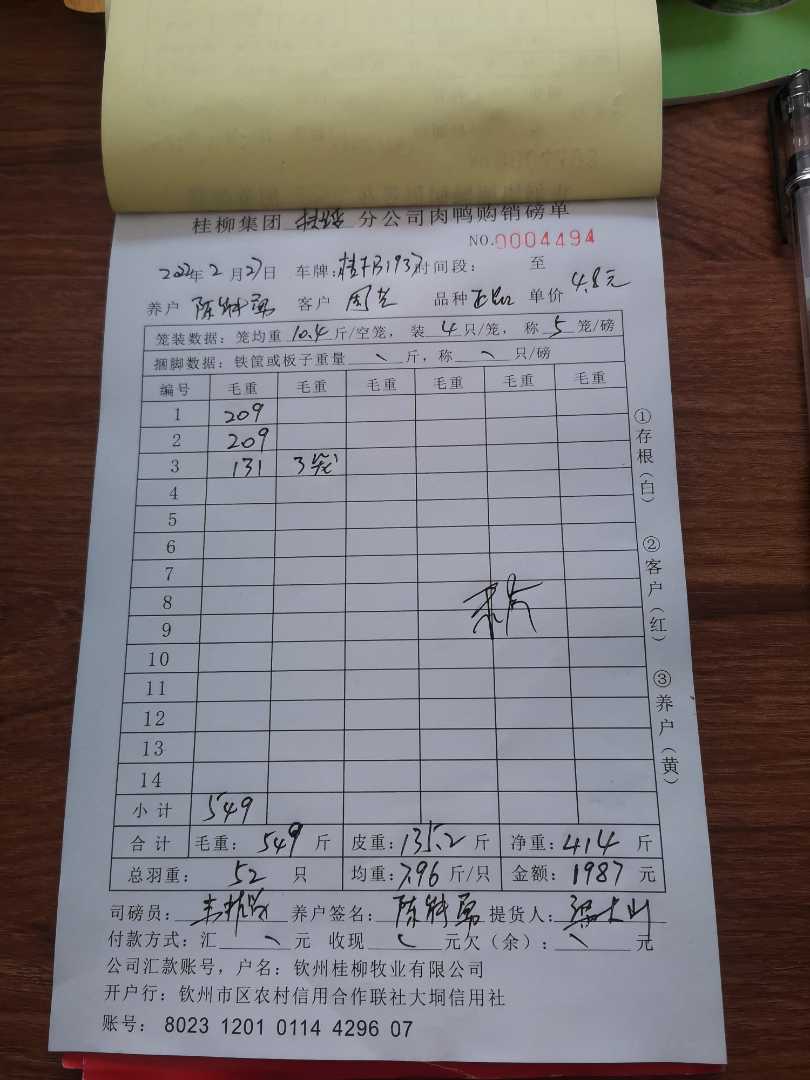 桂柳集团 分公司肉鸭购销磅单
NO.0004494
2022年2月27日 车牌:桂 B1937 时间段: 至
养户 陈 勇 客户 周 品种 正品 单价 4.8元
笼装数据:笼均重 10.4 斤/空笼, 装 4 只/笼, 称 5 笼/磅
捆脚数据:铁筐或板子重量 \ 斤,称 \ 只/磅
编号 毛重 毛重 毛重 毛重 毛重 毛重
1 209
2 209
3 131 3笼
4
5
6
7
8
9
10
11
12
13
14
小计 549
合计 毛重: 549 斤 皮重: 135.2 斤 净重: 414 斤
总羽重: 52 只 均重: 7.96 斤/只 金额: 1987 元
司磅员: 养户签名: 陈 勇 提货人:
付款方式:汇 \ 元 收现 \ 元欠(余): \ 元
公司汇款账号,户名:钦州桂柳牧业有限公司
开户行:钦州市区农村信用合作联社大垌信用社
账号: 8023 1201 0114 4296 07
①存根(白)
②客户(红)
③养户(黄)